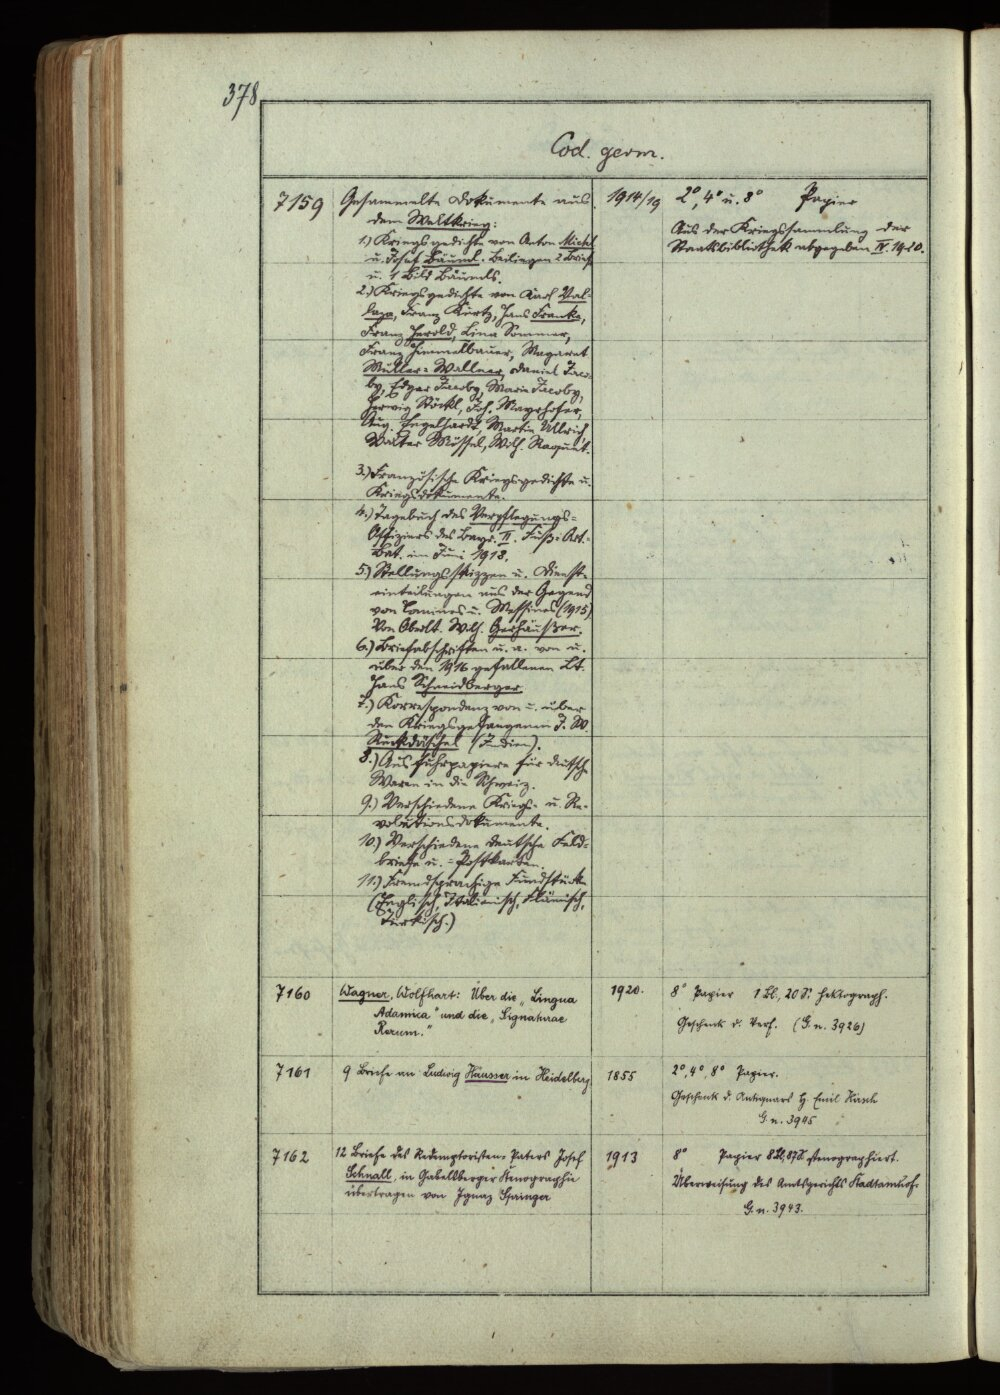 378
Cod. germ.
7159 Gesammelte Dokumente aus 1914/19 2°, 4° u. 8° Papier
dem Weltkrieg: Aus der Kriegssammlung der
1.) Kriegsgedichte von Anton Michel Staatsbibliothek abgegeben IV. 1920.
u. Josef Bäuml. Beiliegen 2 Briefe
u. 1 Bild Bäumls.
2.) Kriegsgedichte von Karl
Franz Kürtz, Hans Franke,
Franz Herold, Lina Sommer,
Franz Himmelbauer, Magaret
Müller-Wallner, Daniel Jaco-
by, Edgar Jacoby, Marie Jacoby,
Herwig Stöckl, Joh. Mayrhofer,
Aug. Engelhardt, Martin Ullrich,
Walter Mössel, Wilh.
3.) Französische Kriegsgedichte u.
Kriegsdokumente.
4.) Tagebuch des Verpflegungs-
Offiziers des Bayr. II. Fuß-Art.-
Bat. im Juni 1918.
5.) Stellungsskizzen u. Dienst-
einteilungen aus der Gegend
von Comines u. Messines (1915)
Von Oberlt. Wilh. Gerhäußer.
6.) Briefabschriften u. a. von u.
über den 1916 gefallenen Lt.
Hans Schneidberger
7.) Korrespondenz von u. über
den Kriegsgefangenen J. W.
Ruckdäschel (Indien).
8.) Ausfuhrpapiere für deutsche
Waren in die Schweiz.
9.) Verschiedene Kriegs- u. Re-
volutionsdokumente.
10.) Verschiedene deutsche Feld-
briefe u. -Postkarten.
11.) Fremdsprachige Fundstücke
(Englisch, Italienisch, Flämisch,
Türkisch.)
7160 Wagner, Wolfhart: Über die „Lingua 1920. 8° Papier 1 Bl., 20 S. hektograph.
Adamica" und die „Signaturae Geschenk d. Verf. (G. n. 3926)
Rerum."
7161 9 Briefe an Ludwig Häusser in Heidelberg 1855 2°, 4°, 8° Papier.
Geschenk d. Antiquars H. Emil Hirsch
G. n. 3945
7162 12 Briefe des Redemptoristen-Paters Josef 1913 8° Papier 8 Bl., 87 S. stenographiert.
Schnall, in Gabelsberger Stenographie Überweisung des Amtsgerichts Stadtamhof.
übertragen von Ignaz Springer G. n. 3943.